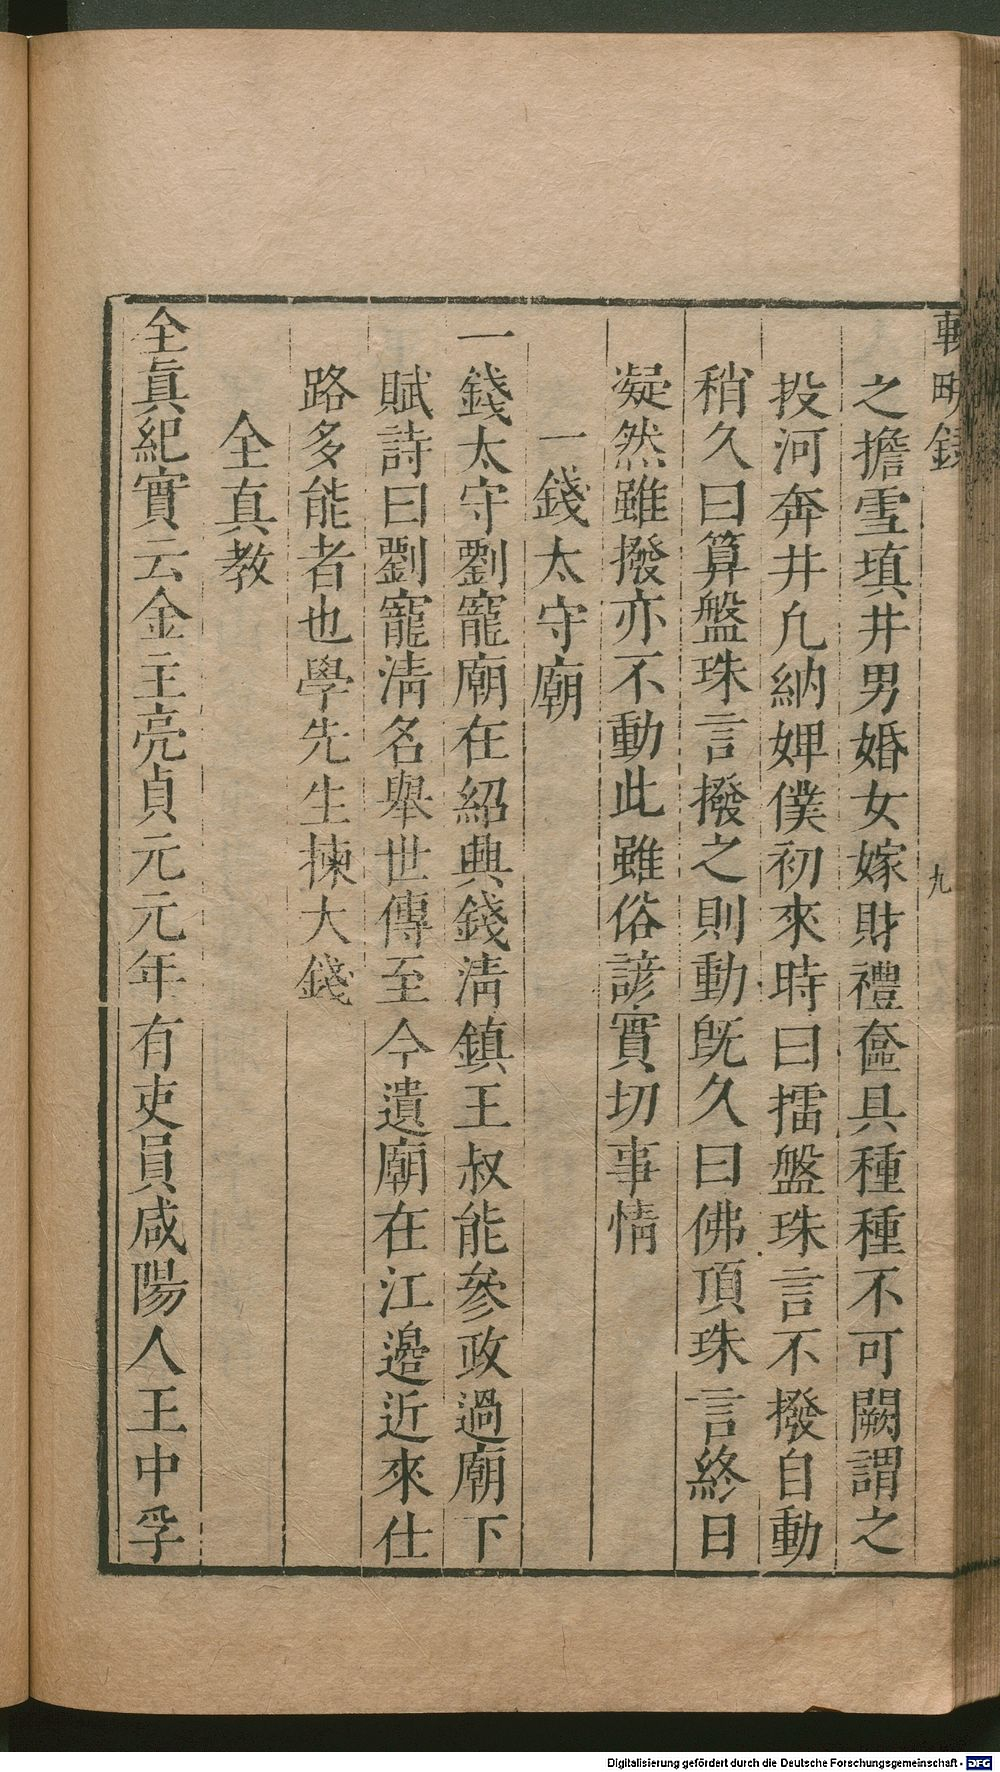 輟畊錄
九
之擔雪填井男婚女嫁財禮奩具種種不可闕謂之
投河奔井凢納婢僕初來時曰擂盤珠言不撥自動
稍久曰算盤珠言撥之則動既久曰佛頂珠言終日
凝然雖撥亦不動此雖俗諺實切事情
一錢太守廟
一錢太守劉寵廟在紹興錢清鎮王叔能參政過廟下
賦詩曰劉寵淸名舉世傳至今遺廟在江邉近來仕
路多能者也學先生揀大錢
全真教
全眞紀實云金主亮貞元元年有吏員咸陽人王中孚
Digitalisierung gefördert durch die Deutsche Forschungsgemeinschaft - DFG